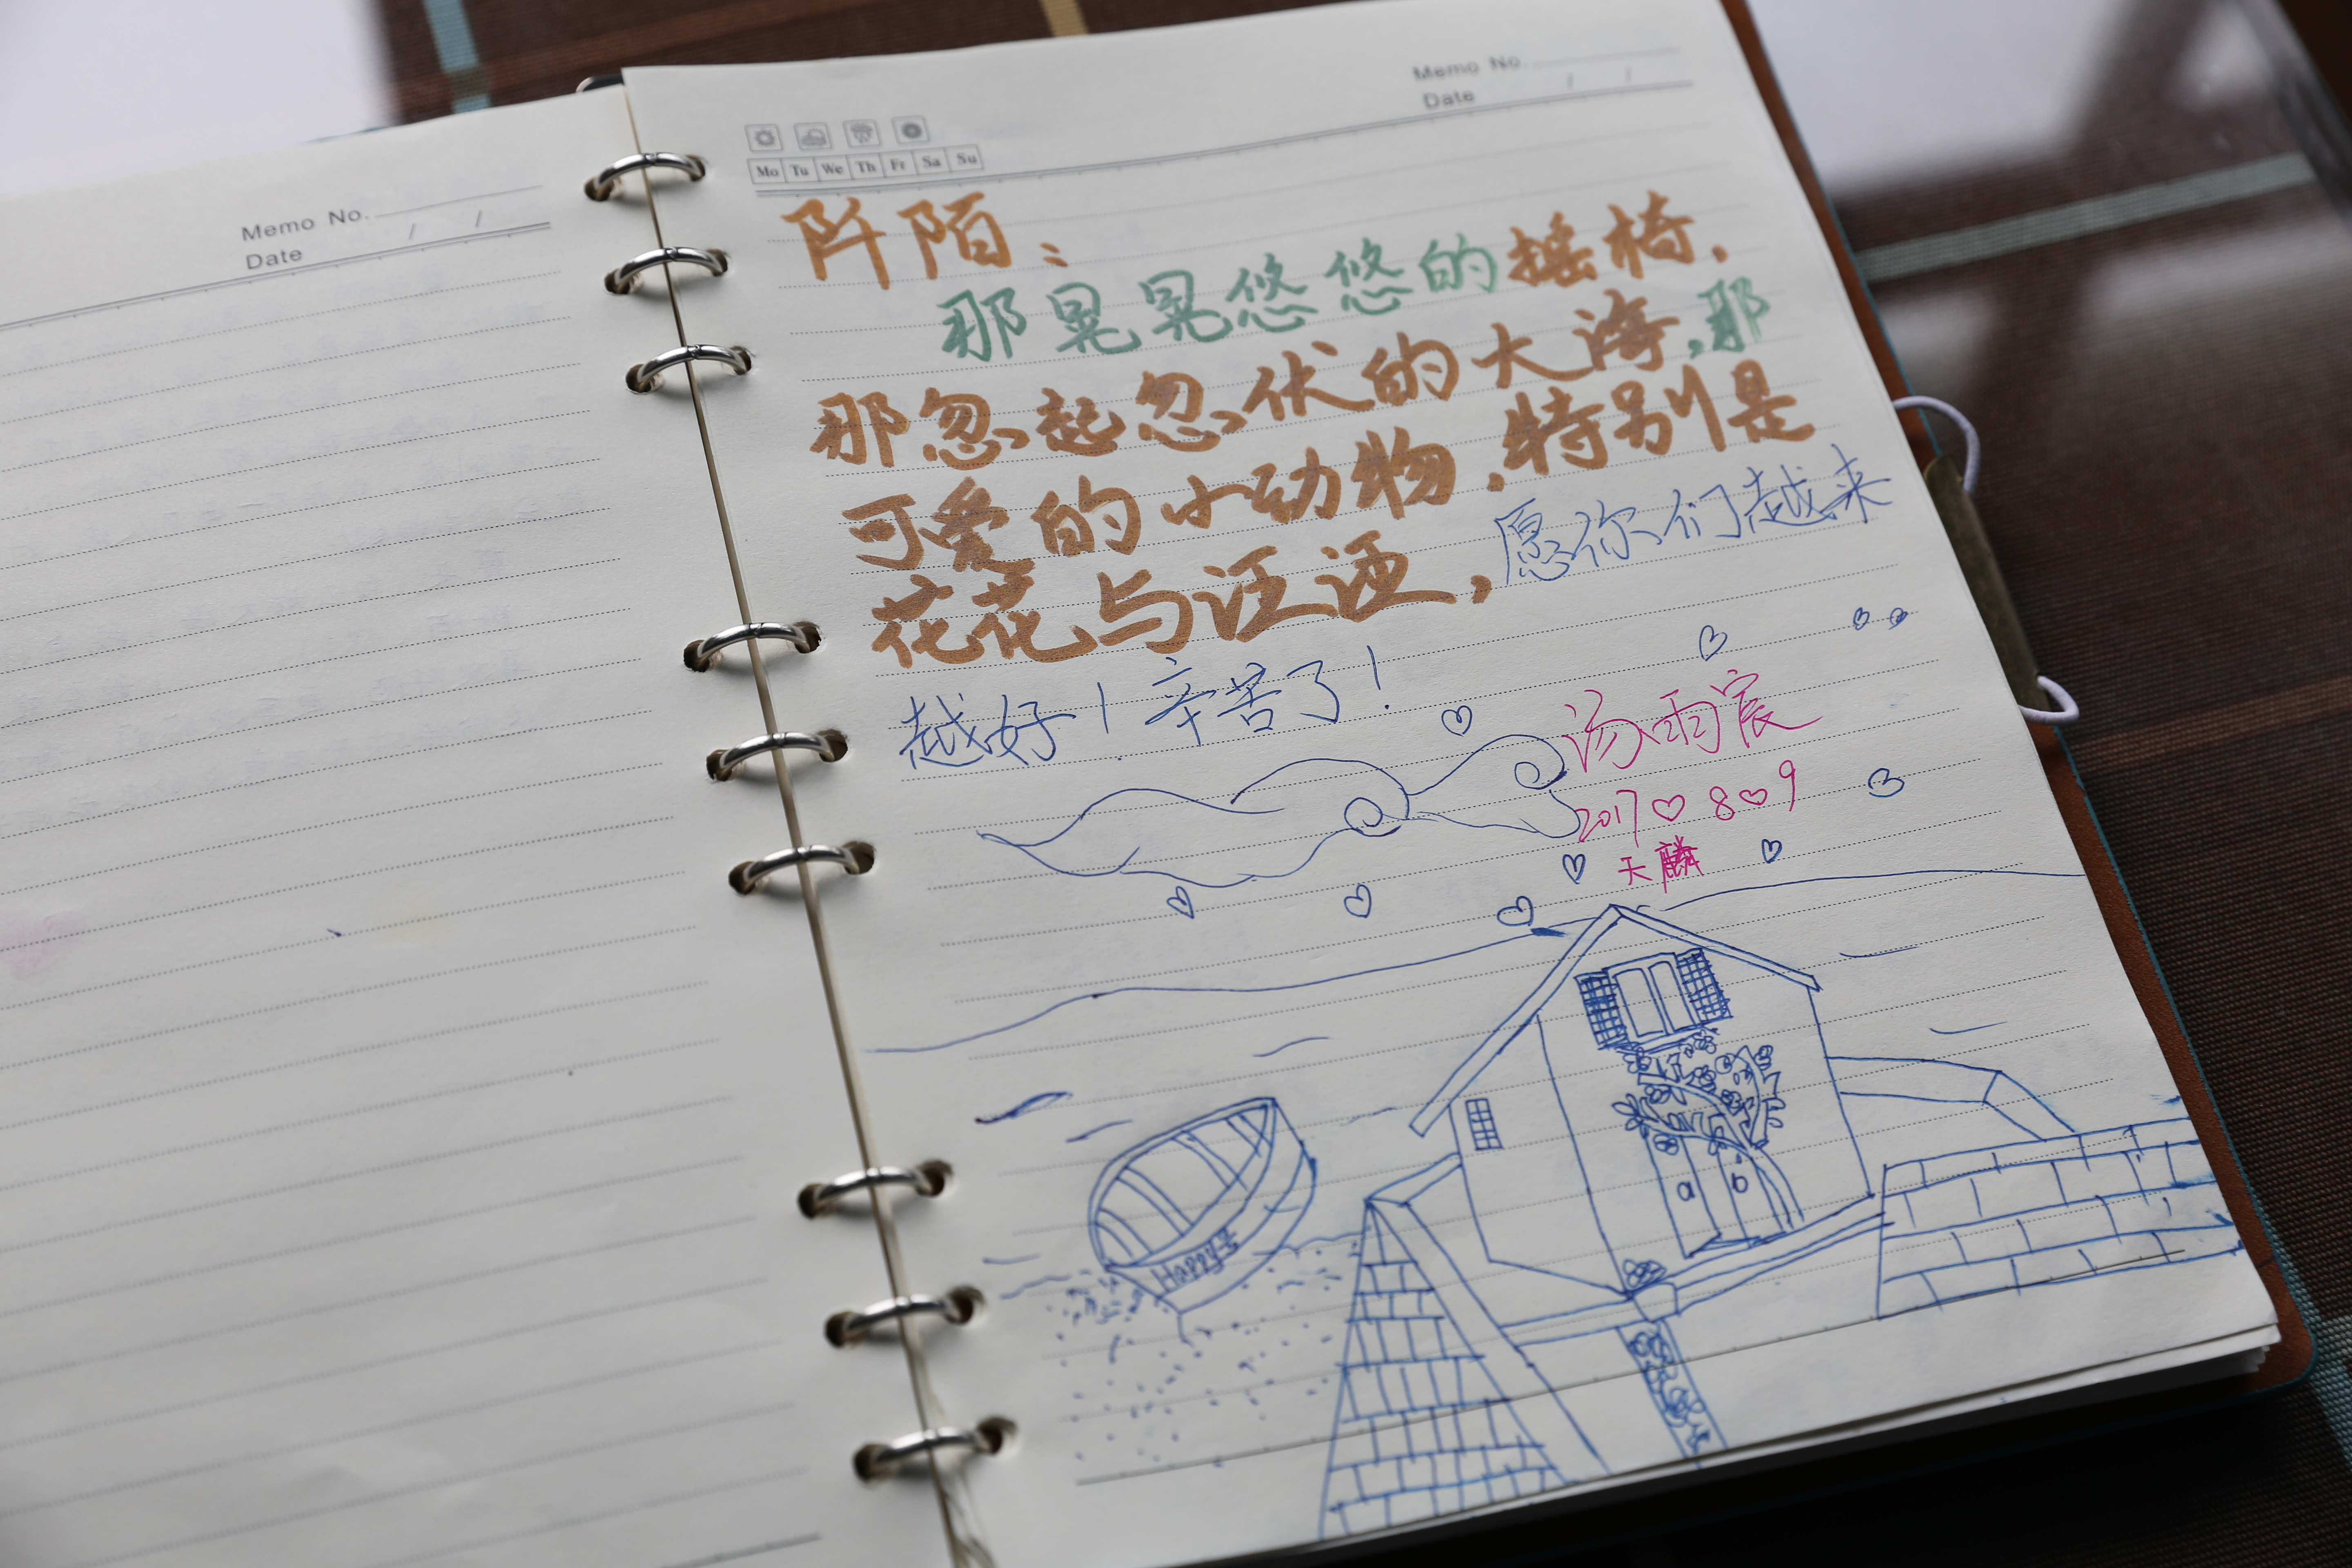 Memo No.
Date / /
Memo No.
Date / /
Mo Tu We Th Fr Sa Su
阡陌：
那晃晃悠悠的摇椅，
那忽起忽伏的大海，那
可爱的小动物，特别是
花花与汪汪，愿你们越来
越好！辛苦了！
汤雨宸
2017♡8♡9
天麟
a b
Happy号